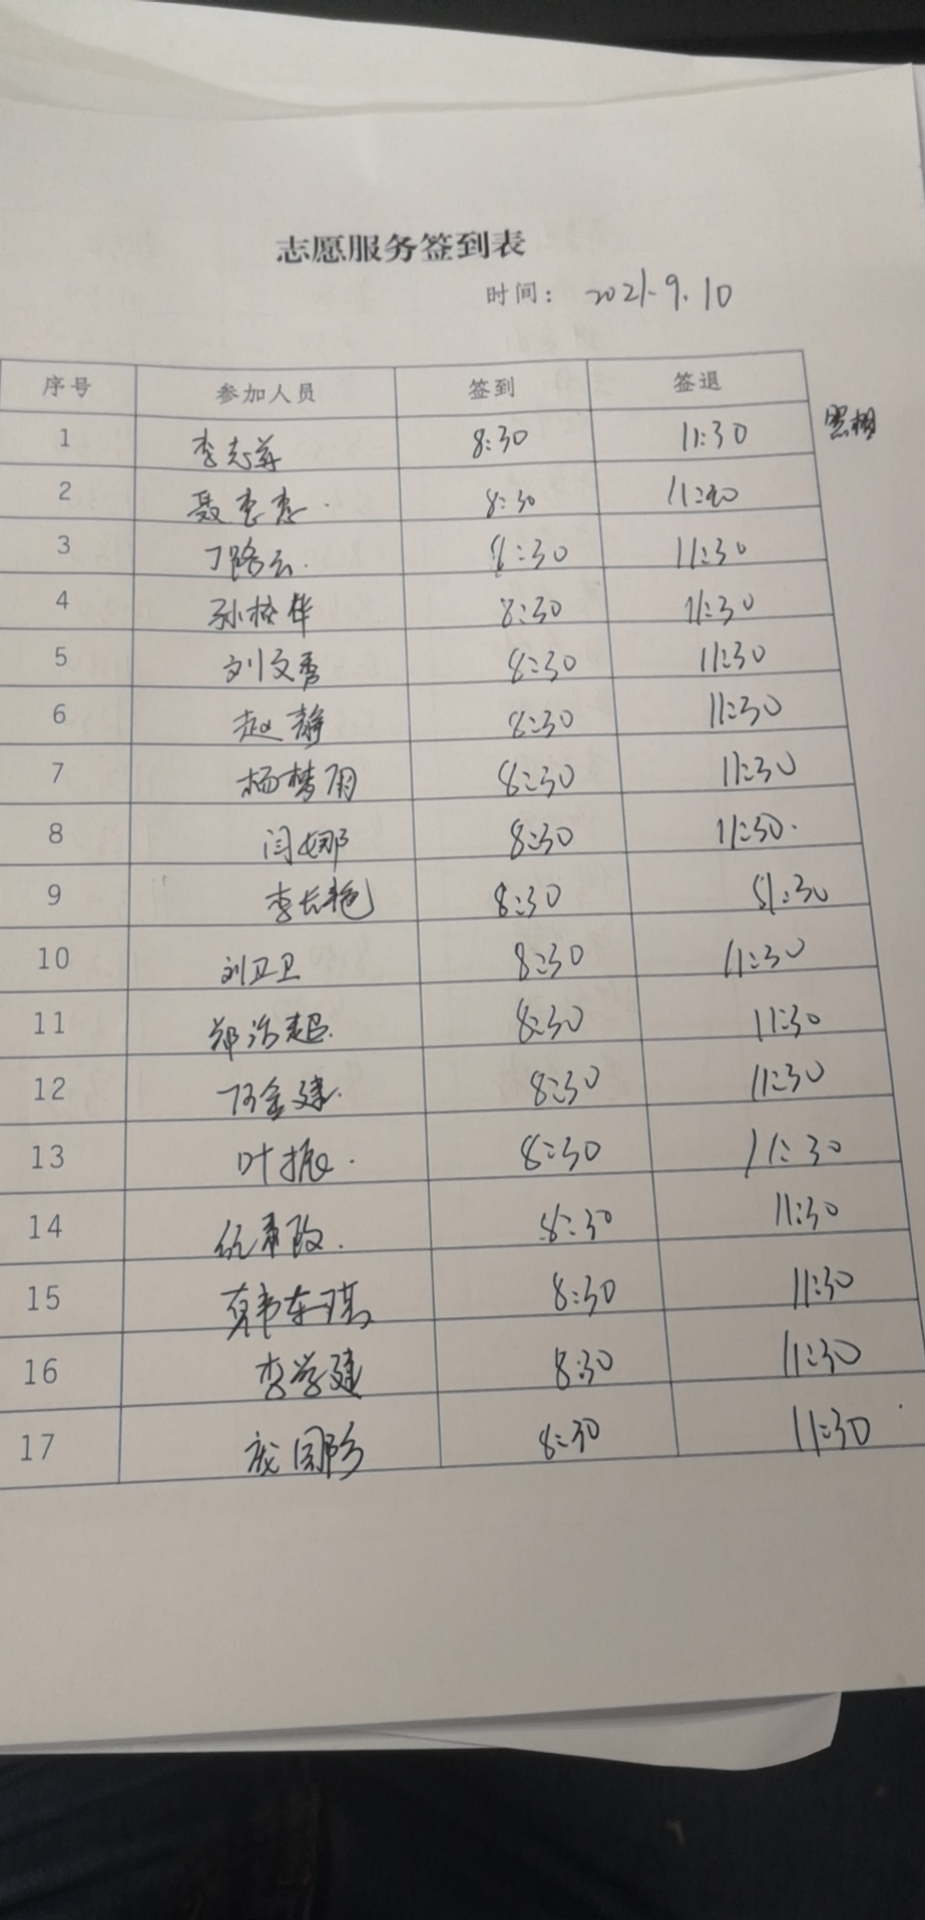 志愿服务签到表
时间： 2021.9.10
序号 参加人员 签到 签退
1 李志萍 8:30 11:30 照相
2 聂 8:30
3 丁路云. 8:30 11:30
4 孙格华 8:30 11:30
5 刘文秀 8:30 11:30
6 赵静 8:30 11:30
7 杨梦雨 8:30 11:30
8 闫娜 8:30 11:30.
9 李长艳 8:30 11:30
10 刘卫卫 8:30 11:30
11 郑治超. 8:30 11:30
12 金建. 8:30 11:30
13 叶振. 8:30 11:30
14 8:30 11:30
15 8:30 11:30
16 李学建 8:30 11:30
17 庞国珍 8:30 11:30